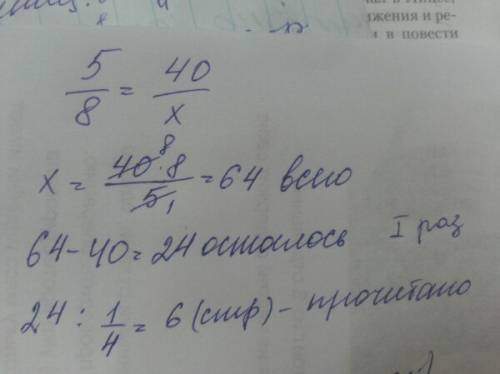 жения и ре-
м в повести
5/8 = 40/x
x = 40·8/5 = 64 всего
8
1
64 - 40 = 24 осталось I раз
24 : 1/4 = 6 (стр) - прочитано